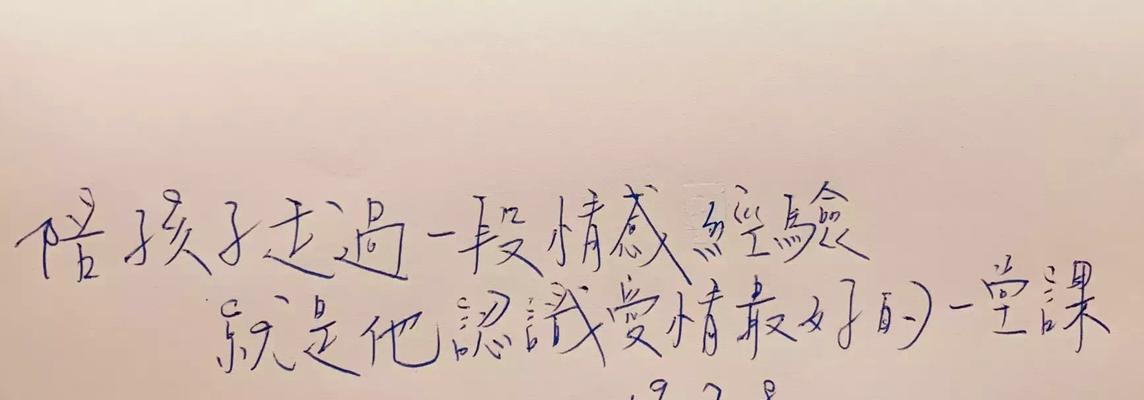 陪孩子走過一段情感經驗
就是他認識愛情最好的一堂課